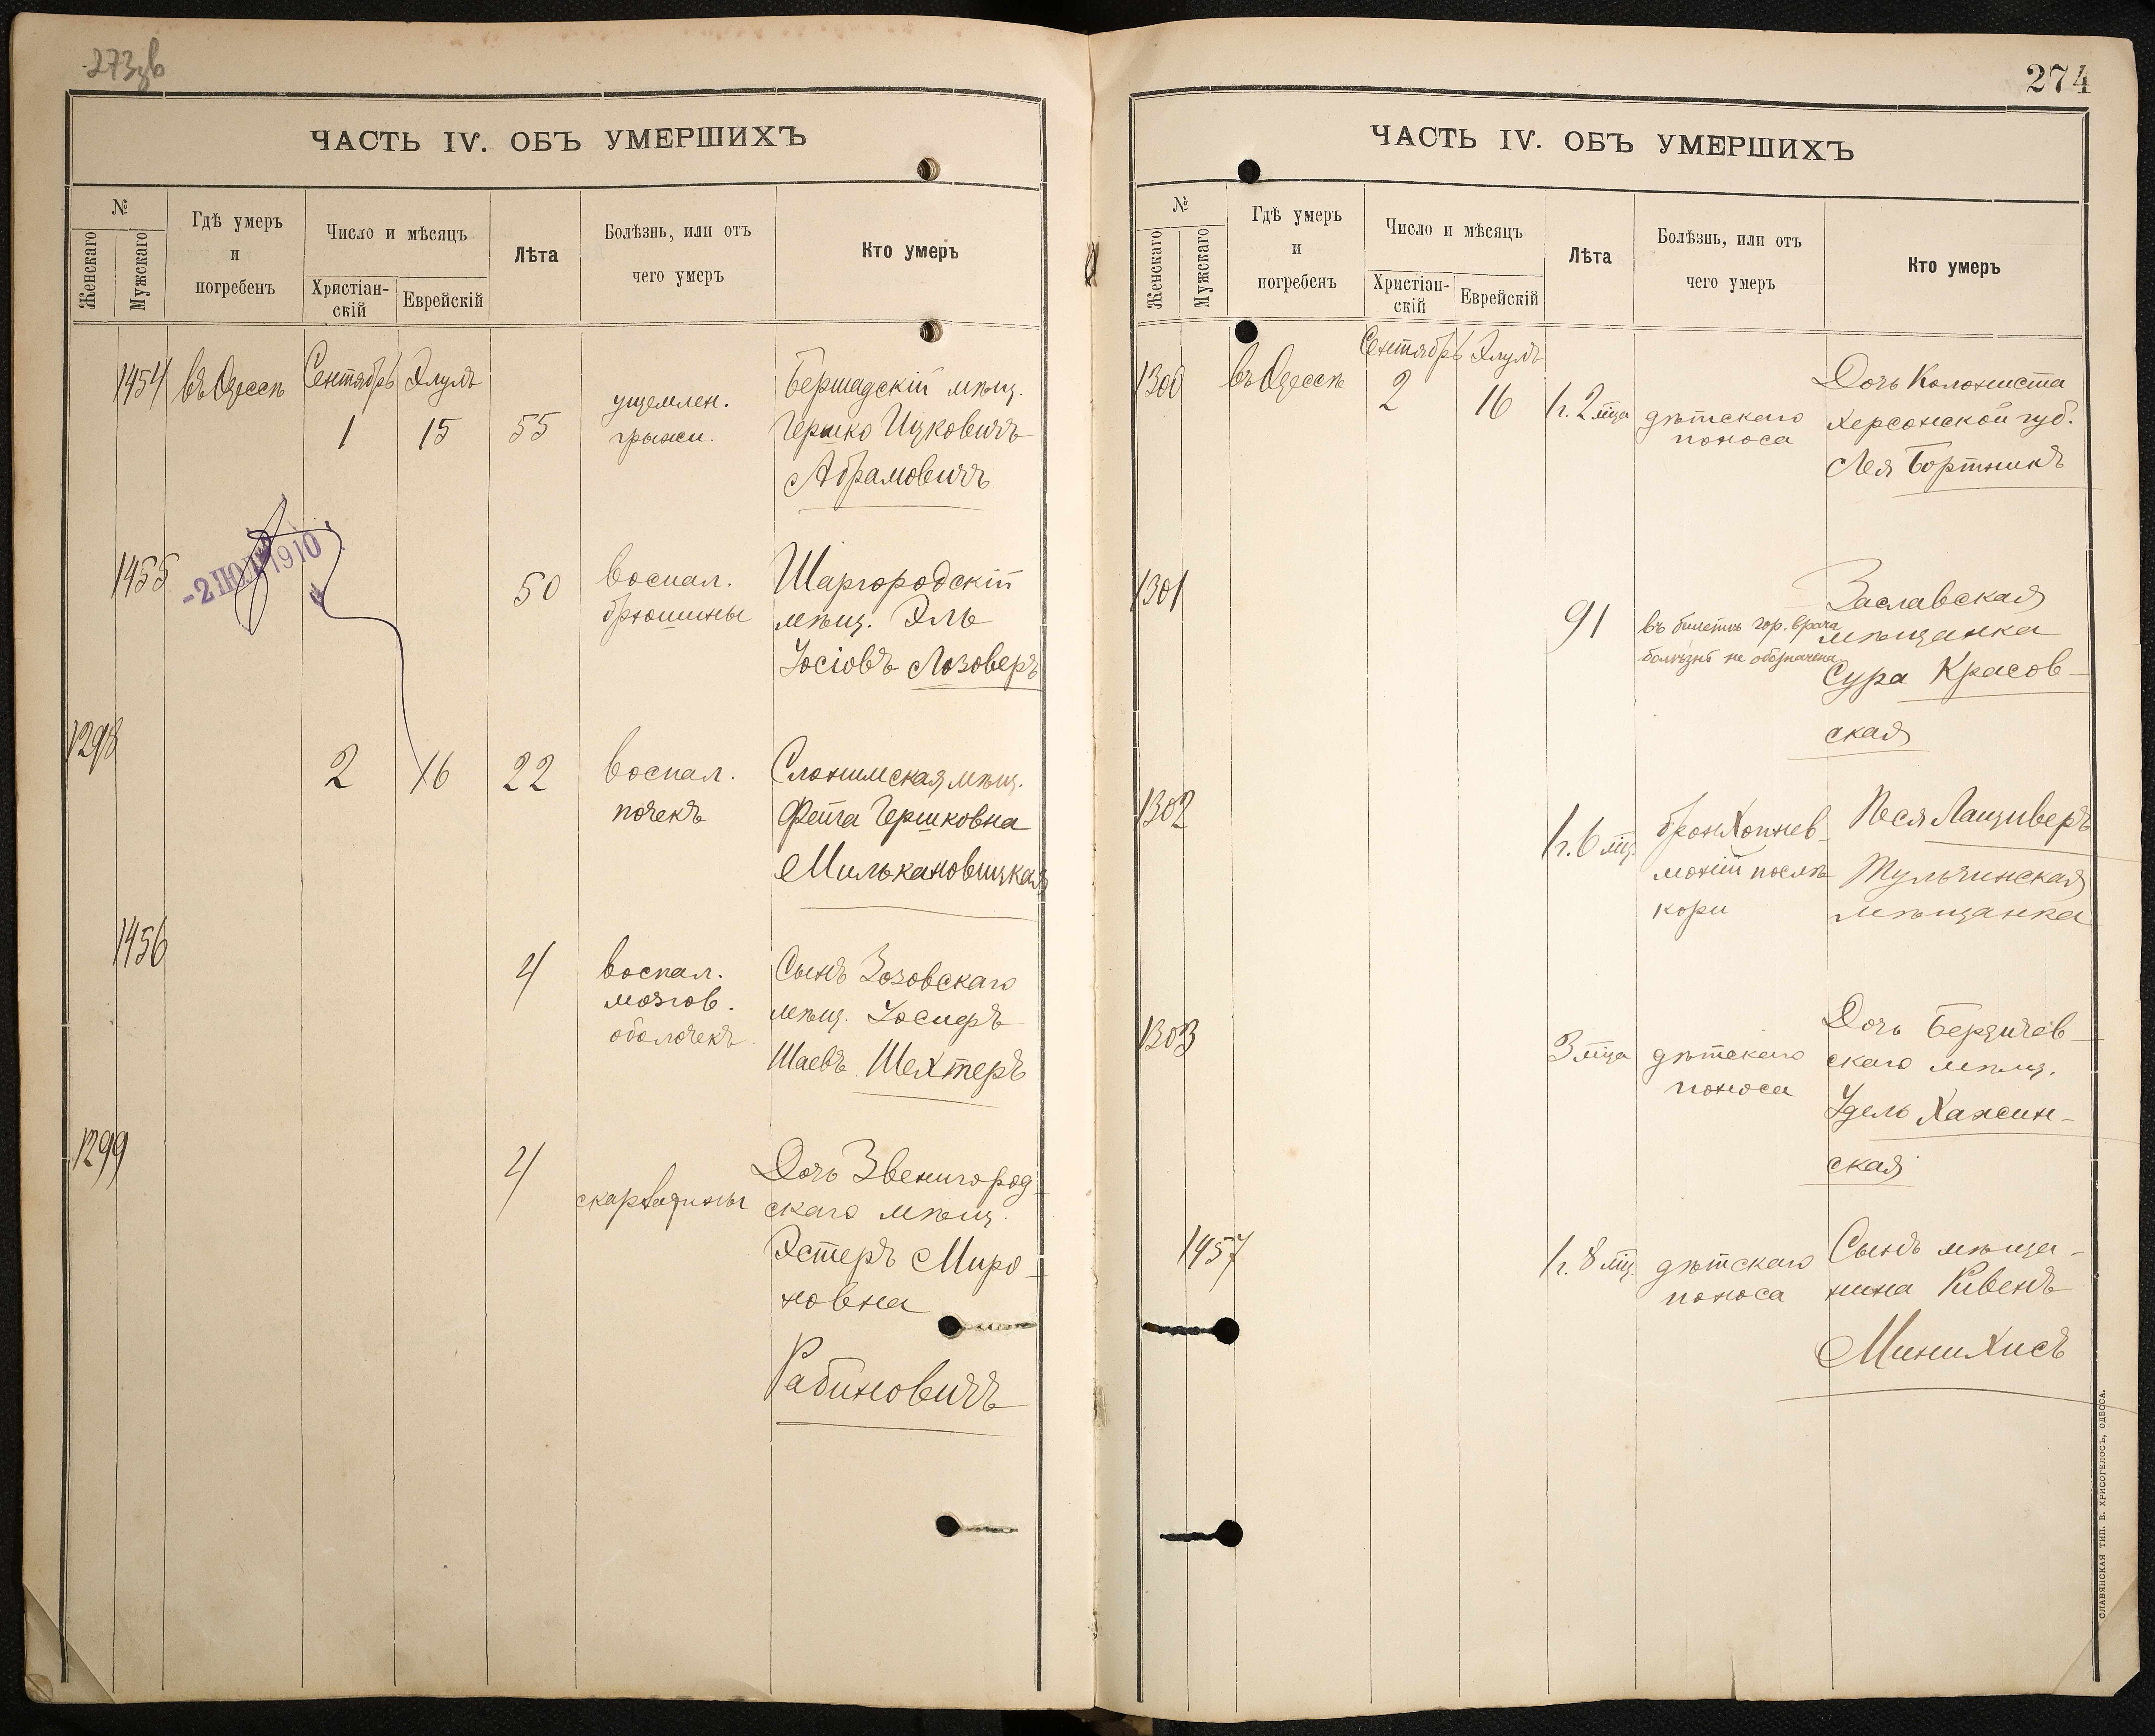 273зв
ЧАСТЬ IV. ОБЪ УМЕРШИХЪ
№
Женскаго
Мужскаго
Гдѣ умеръ
и
погребенъ
Число и мѣсяцъ
Христіан-
скій
Еврейскій
Лѣта
Болѣзнь, или отъ
чего умеръ
Кто умеръ
1454 въ Одессѣ Сентябрь Элулъ
1 15 55
ущемлен.
грыжи.
Бершадскій мѣщ.
Гершко Ицковичъ
Абрамовичъ
-2 ІЮЛ 1910
1455
50
воспал.
брюшины
Шаргородскій
мѣщ. Эль
Іосіовъ Лозоверъ
1298
2 16 22
воспал.
почекъ
Слонимская мѣщ.
Фейга Гершковна
Мильканов​ицкая
1456
4
воспал.
мозгов.
оболочекъ
Сынъ Зозовскаго
мѣщ. Іосифъ
Шаевъ Шехтеръ
1299
4
скарлатины
Дочь Звенигород-
скаго мѣщ.
Эстеръ Миро-
новна
Рабиновичъ
274
ЧАСТЬ IV. ОБЪ УМЕРШИХЪ
№
Женскаго
Мужскаго
Гдѣ умеръ
и
погребенъ
Число и мѣсяцъ
Христіан-
скій
Еврейскій
Лѣта
Болѣзнь, или отъ
чего умеръ
Кто умеръ
1300 въ Одессѣ Сентябрь Элулъ
2 16 1 г. 2 мца
дѣтскаго
поноса
Дочь Колониста
Херсонской губ.
Лея Бортникъ
1301
91
въ билетѣ гор. врача
болѣзнь не обозначена
Заславская
мѣщанка
Сура Красов-
ская
1302
1 г. 6 мц.
бронхопнев-
моній послѣ
кори
Песя Ланциверъ
Тульчинская
мѣщанка
1303
3 мца
дѣтскаго
поноса
Дочь Бердичев-
скаго мѣщ.
Удель Хажин-
ская
1457
1 г. 8 мц.
дѣтскаго
поноса
Сынъ мѣща-
нина Рувенъ
Минихисъ
СЛАВЯНСКАЯ ТИП. Е. ХРИСОГЕЛОСЪ, ОДЕССА.